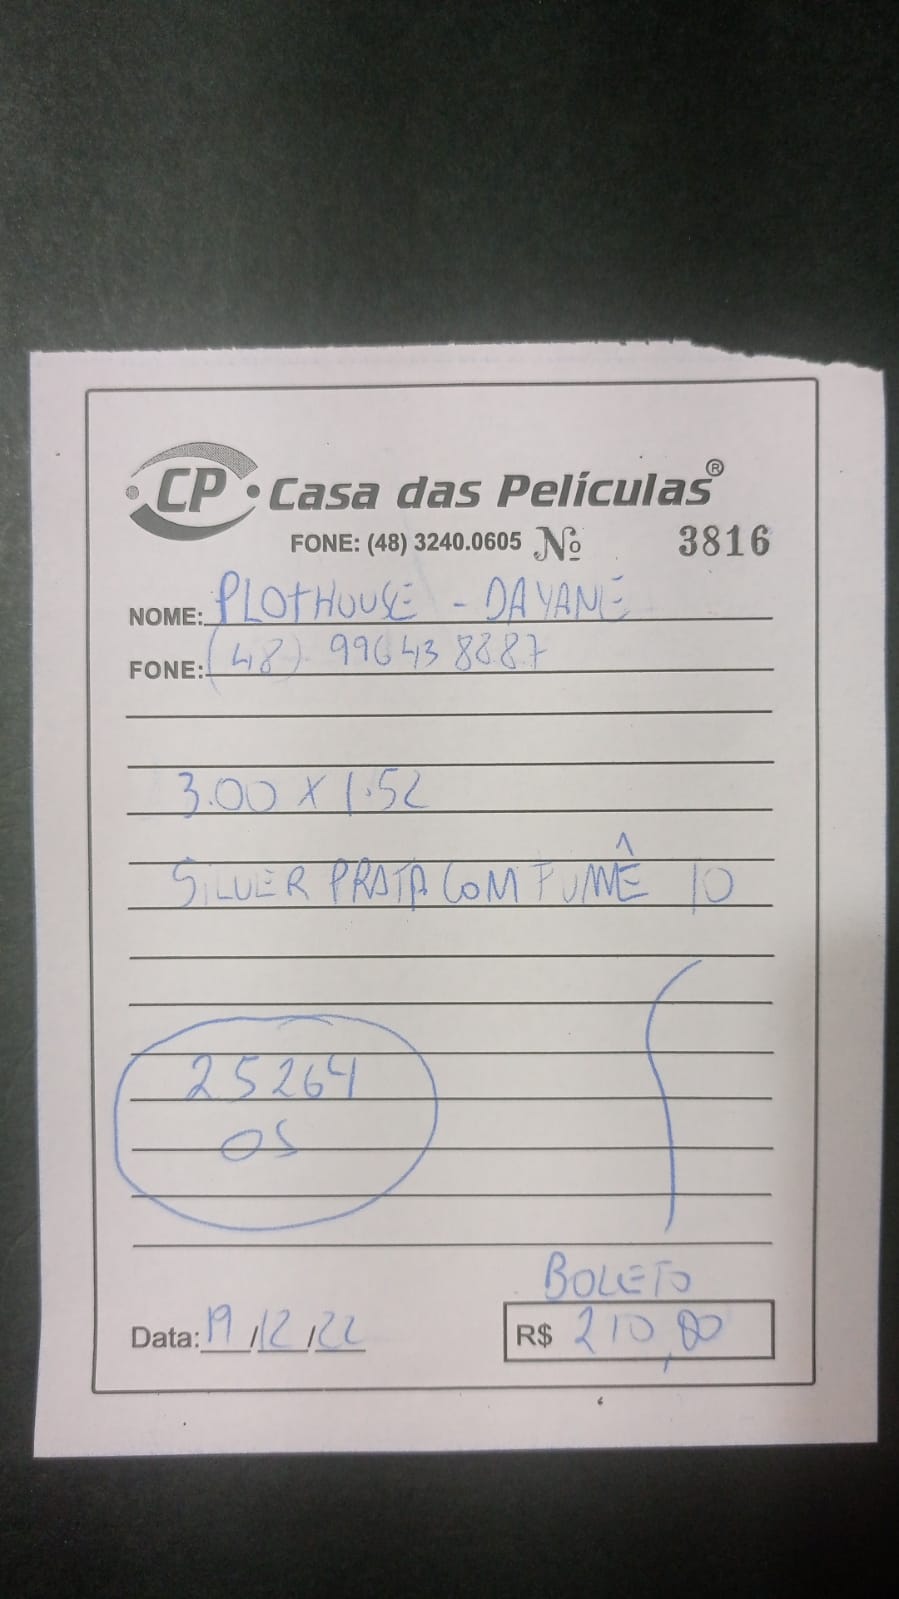 CP Casa das Películas®
FONE: (48) 3240.0605 Nº 3816
NOME: PLOTHOUSE - DAYANE
FONE: (48) 99643 8887
3.00 X 1.52
SILVER PRATA COM FUMÊ 10
25264
OS
BOLETO
Data: 19/12/22 R$ 210,80